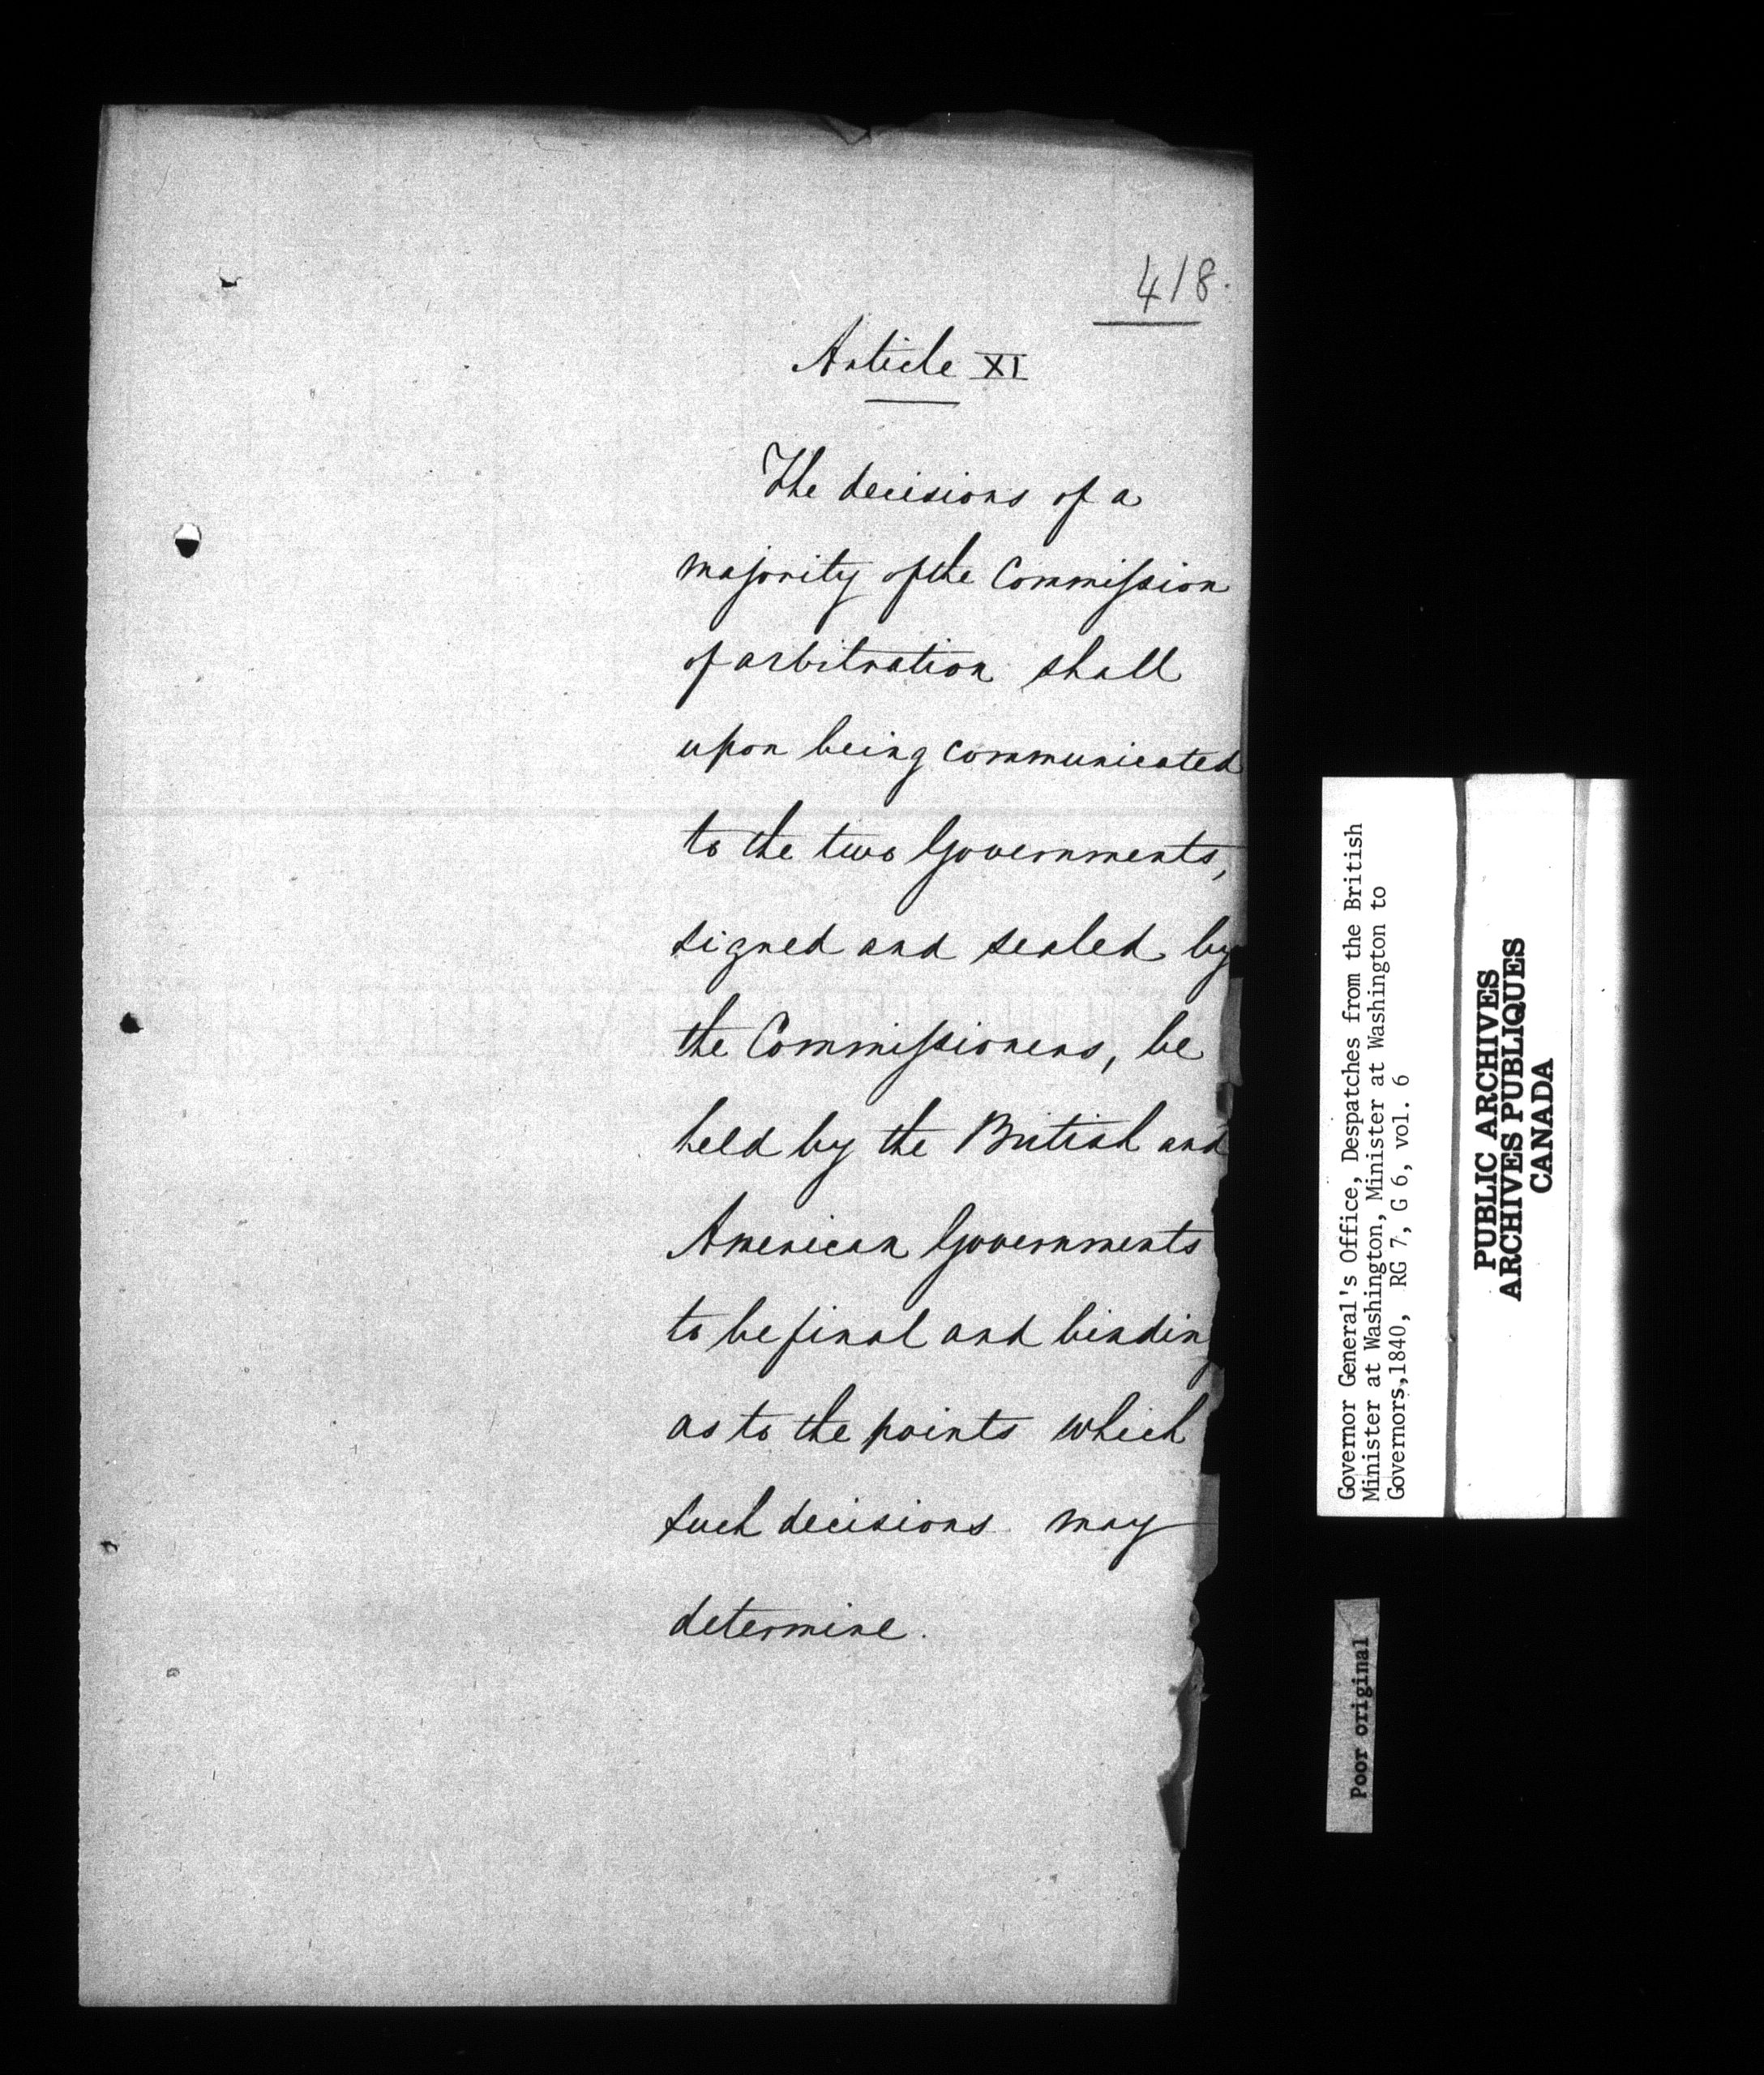 418.
Article XI
The decisions of a
majority of the Commission
of arbitration shall
upon being communicated
to the two Governments,
signed and sealed by
the Commissioners, be
held by the British and
American Governments
to be final and binding
as to the points which
such decisions may
determine.
Governor General's Office, Despatches from the British
Minister at Washington, Minister at Washington to
Governors,1840, RG 7, G 6, vol. 6
PUBLIC ARCHIVES
ARCHIVES PUBLIQUES
CANADA
Poor original